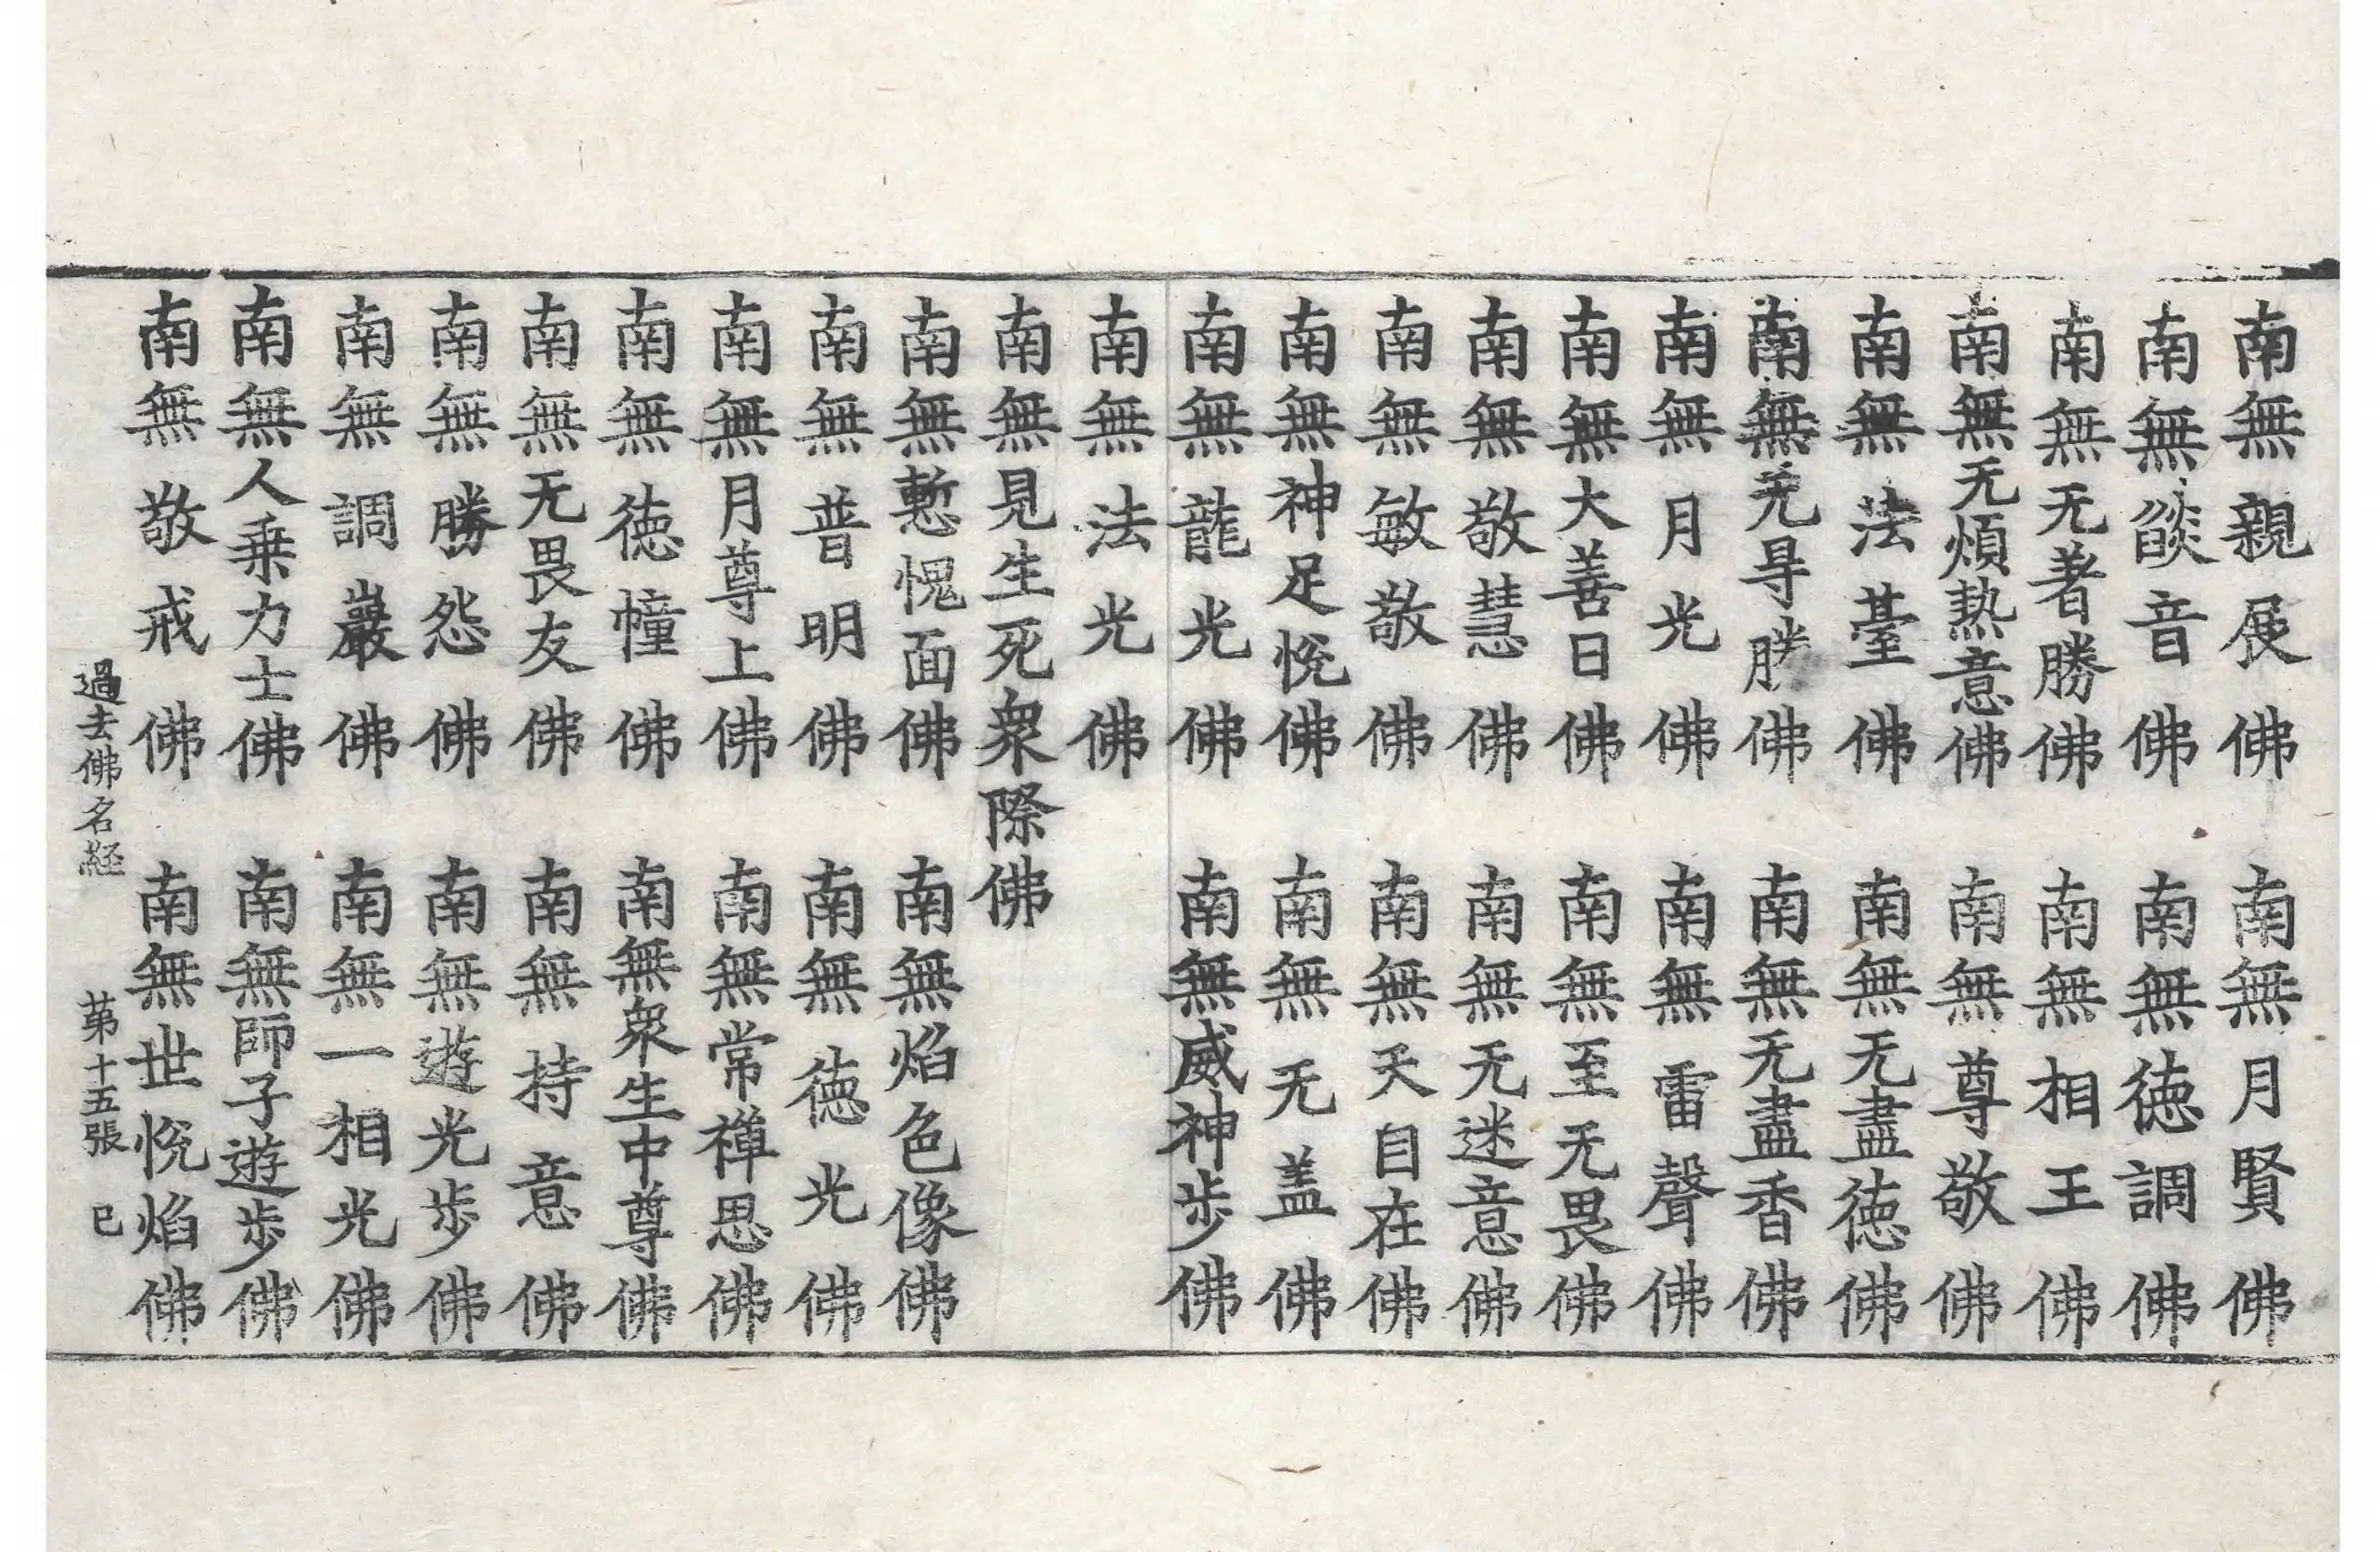 南無親展佛　南無月賢佛
南無燄音佛　南無德調佛
南無无著勝佛　南無相王佛
南無无煩熱意佛　南無尊敬佛
南無法臺佛　南無无盡德佛
南無无㝵勝佛　南無无盡香佛
南無月光佛　南無雷聲佛
南無大善日佛　南無至无畏佛
南無敬慧佛　南無无迷意佛
南無敏敬佛　南無天自在佛
南無神足悅佛　南無无盖佛
南無龍光佛　南無威神步佛
南無法光佛
南無見生死衆際佛
南無慙愧面佛　南無焰色像佛
南無普明佛　南無德光佛
南無月尊上佛　南無常禪思佛
南無德幢佛　南無衆生中尊佛
南無无畏友佛　南無持意佛
南無勝怨佛　南無遊光步佛
南無調巖佛　南無一相光佛
南無人乗力士佛　南無師子遊步佛
南無敬戒佛　南無世悅焰佛
過去佛名経　苐十五張　巳